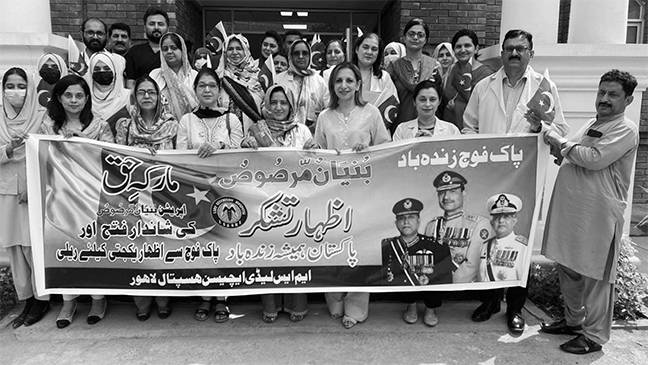 پاک فوج زندہ باد
بُنیَانٌ مَّرصُوصٌ
معرکہ حق
اظہار تشکر
آپریشن بنیان مرصوص
کی شاندار فتح اور
پاکستان ہمیشہ زندہ باد
پاک فوج سے اظہار یکجہتی کیلئے ریلی
ایم ایس لیڈی ایچیسن ہسپتال لاہور